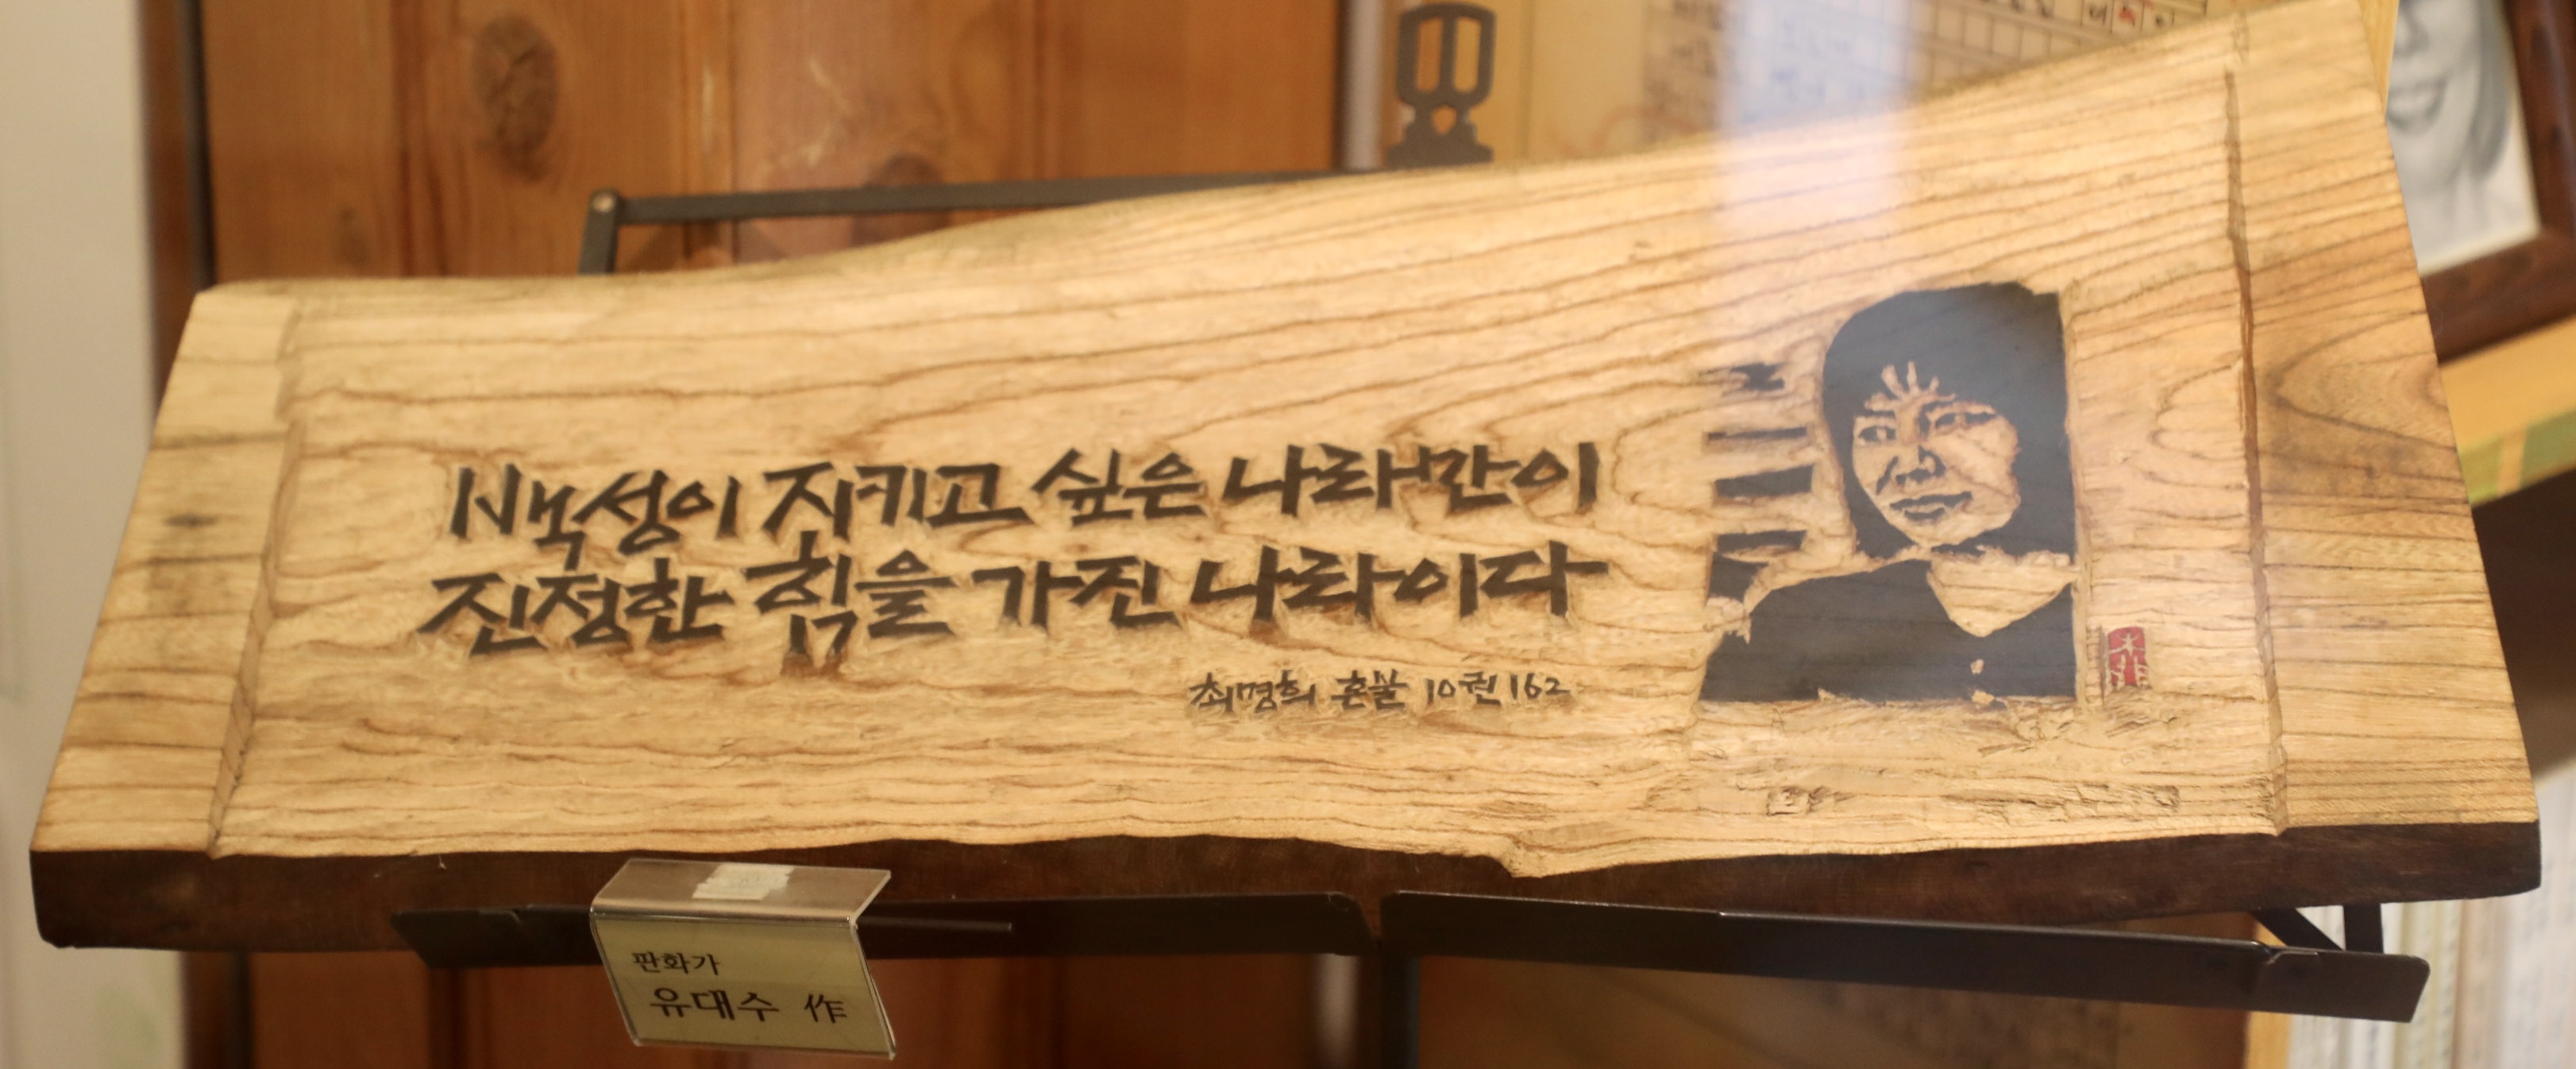 백성이 지키고 싶은 나라만이
진정한 힘을 가진 나라이다
최명희 혼불 10권 162
판화가
유대수 作